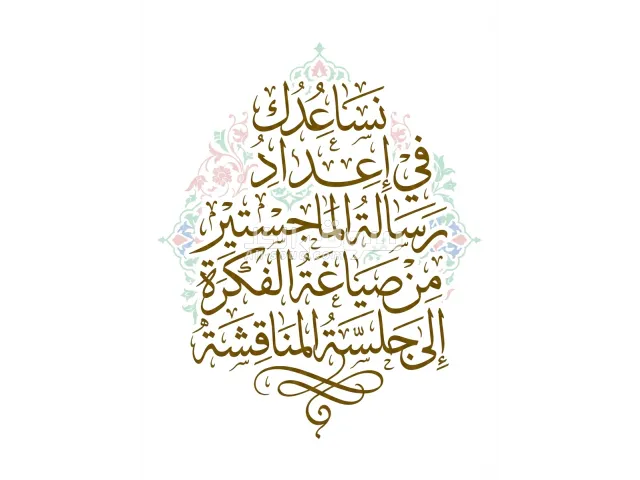 نساعدك
في إعداد
رسالة الماجستير
من صياغة الفكرة
إلى جلسة المناقشة